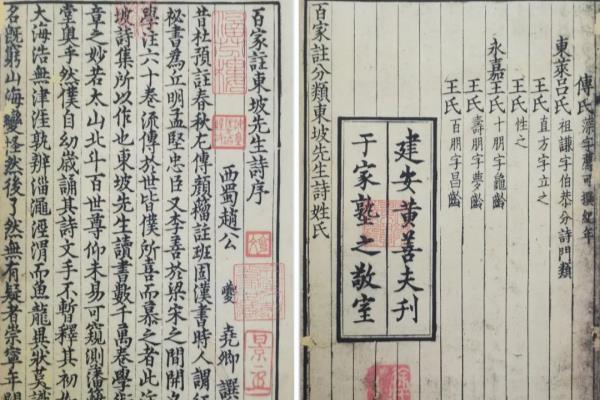 百家註東坡先生詩序
西蜀趙公夔堯卿譔
昔杜預註春秋左傳顏籀註班固漢書時人謂征
秘書為丘明孟堅忠臣又李善於梁宋之間開
學注六十卷流傳於世皆僕所喜而慕之者此注
坡詩集所以作也東坡先生讀書數千萬卷學術
章之妙若太山北斗百世尊仰未易可窺測藩
堂奧乎然僕自幼歲誦其詩文手不暫釋其初如
大海浩無津涯孰辨淄澠涇渭而魚龍異狀莫識
名既窮山海變怪然後了然無有疑者崇寧年間
傅氏 藻字薦可撰紀年
東萊呂氏 祖謙字伯恭分詩門類
王氏 直方字立之
王氏 性之
永嘉王氏 十朋字龜齡
王氏 壽朋字夢齡
王氏 百朋字昌齡
建安黃善夫刊
于家塾之敬室
百家註分類東坡先生詩姓氏